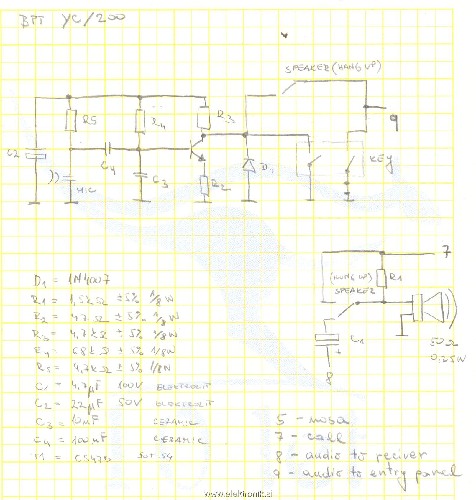 BPT YC/200
SPEAKER (HANG UP)
R5
R4
R3
9
C2
C4
MIC
C3
R2
D1
KEY
7
(HUNG UP)
SPEAKER
R1
C1
+
8
50Ω
0,25W
D1 = 1N4007
R1 = 1,5kΩ ±5% 1/8W
R2 = 47Ω ±5% 1/8W
R3 = 4,7kΩ ±5% 1/8W
R4 = 68kΩ ±5% 1/8W
R5 = 4,7kΩ ±5% 1/8W
C1 = 4,7µF 100V ELEKTROLIT
C2 = 22µF 50V ELEKROLIT
C3 = 10nF CERAMIC
C4 = 100nF CERAMIC
SOT 54
5 - masa
7 - call
8 - audio to reciver
9 - audio to entry panel
www.elektronik.si